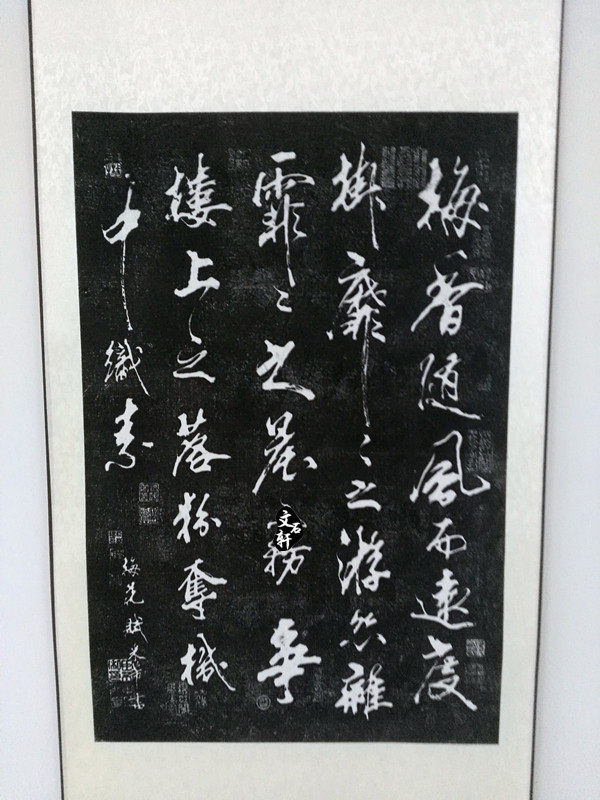 梅香随風而遠度
掛靡〻之游絲雜
霏〻之晨霧爭
樓上之落粉奪機
中織素
梅花賦米芾書
文石轩